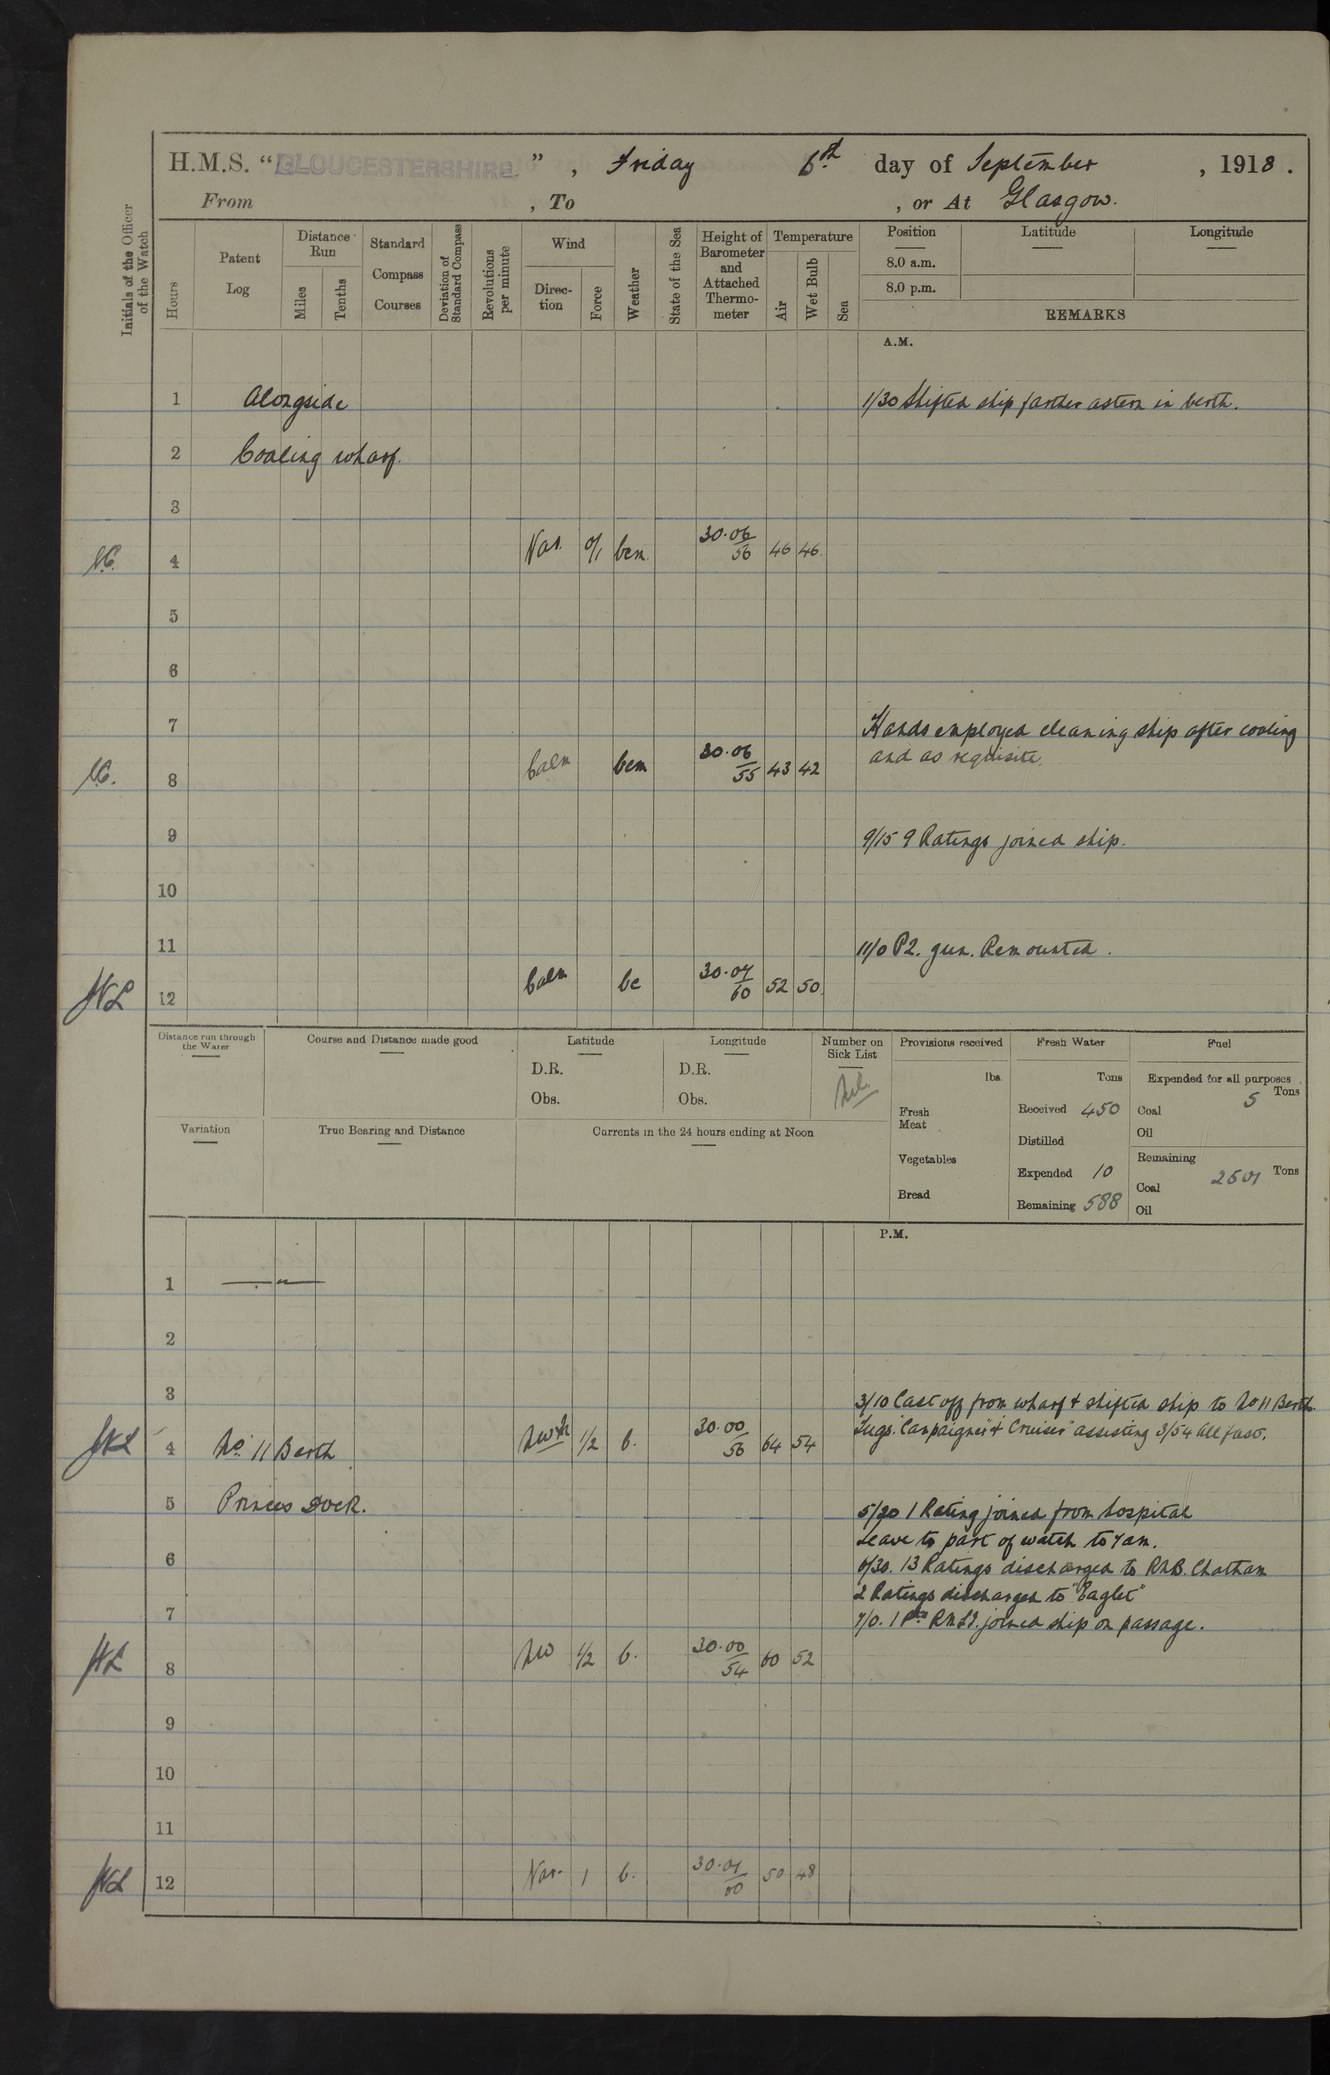 H.M.S. “GLOUCESTERSHIRE.” , Friday 6th day of September , 1918 .
From , To , or At Glasgow.
Initials of the Officer of the Watch
Hours
Patent Log
Distance Run
Miles
Tenths
Standard Compass Courses
Deviation of Standard Compass
Revolutions per minute
Wind
Direction
Force
Weather
State of the Sea
Height of Barometer and Attached Thermometer
Temperature
Air
Wet Bulb
Sea
Position Latitude Longitude
8.0 a.m.
8.0 p.m.
REMARKS
A.M.
1 Alongside 1/30 Shifted ship farther astern in berth.
2 Coaling wharf.
3
4 Var. 0/1 bcm 30.06/56 46 46
5
6
7 Hands employed cleaning ship after coaling
and as requisite.
8 Calm bcm 30.06/55 43 42
9 9/15 9 Ratings joined ship.
10
11 11/0 P2. gun. Remounted.
12 Calm bc 30.04/60 52 50
Distance run through the Water
Course and Distance made good
Latitude
D.R.
Obs.
Longitude
D.R.
Obs.
Number on Sick List
Nil
Provisions received
lbs.
Fresh Meat
Vegetables
Bread
Fresh Water
Tons
Received 450
Distilled
Expended 10
Remaining 588
Fuel
Expended for all purposes
Tons
Coal 5
Oil
Remaining
Tons
Coal 2501
Oil
Variation
True Bearing and Distance
Currents in the 24 hours ending at Noon
P.M.
1 — " —
2
3 3/10 Cast off from wharf & shifted ship to No 11 Berth
Tugs "Campaigner" & "Cruiser" assisting 3/54 All fast.
4 No. 11 Berth 1/2 b. 30.00/56 64 54
5 Princes Dock. 5/20 1 Rating joined from hospital
Leave to part of watch to 7 am.
6 6/30. 13 Ratings discharged to R.N.B. Chatham
2 Ratings discharged to "Eaglet"
7 7/0. 1 Pte R.M.L.I. joined ship on passage.
8 NW 1/2 b. 30.00/54 60 52
9
10
11
12 Var. 1 b. 30.01/60 50 48